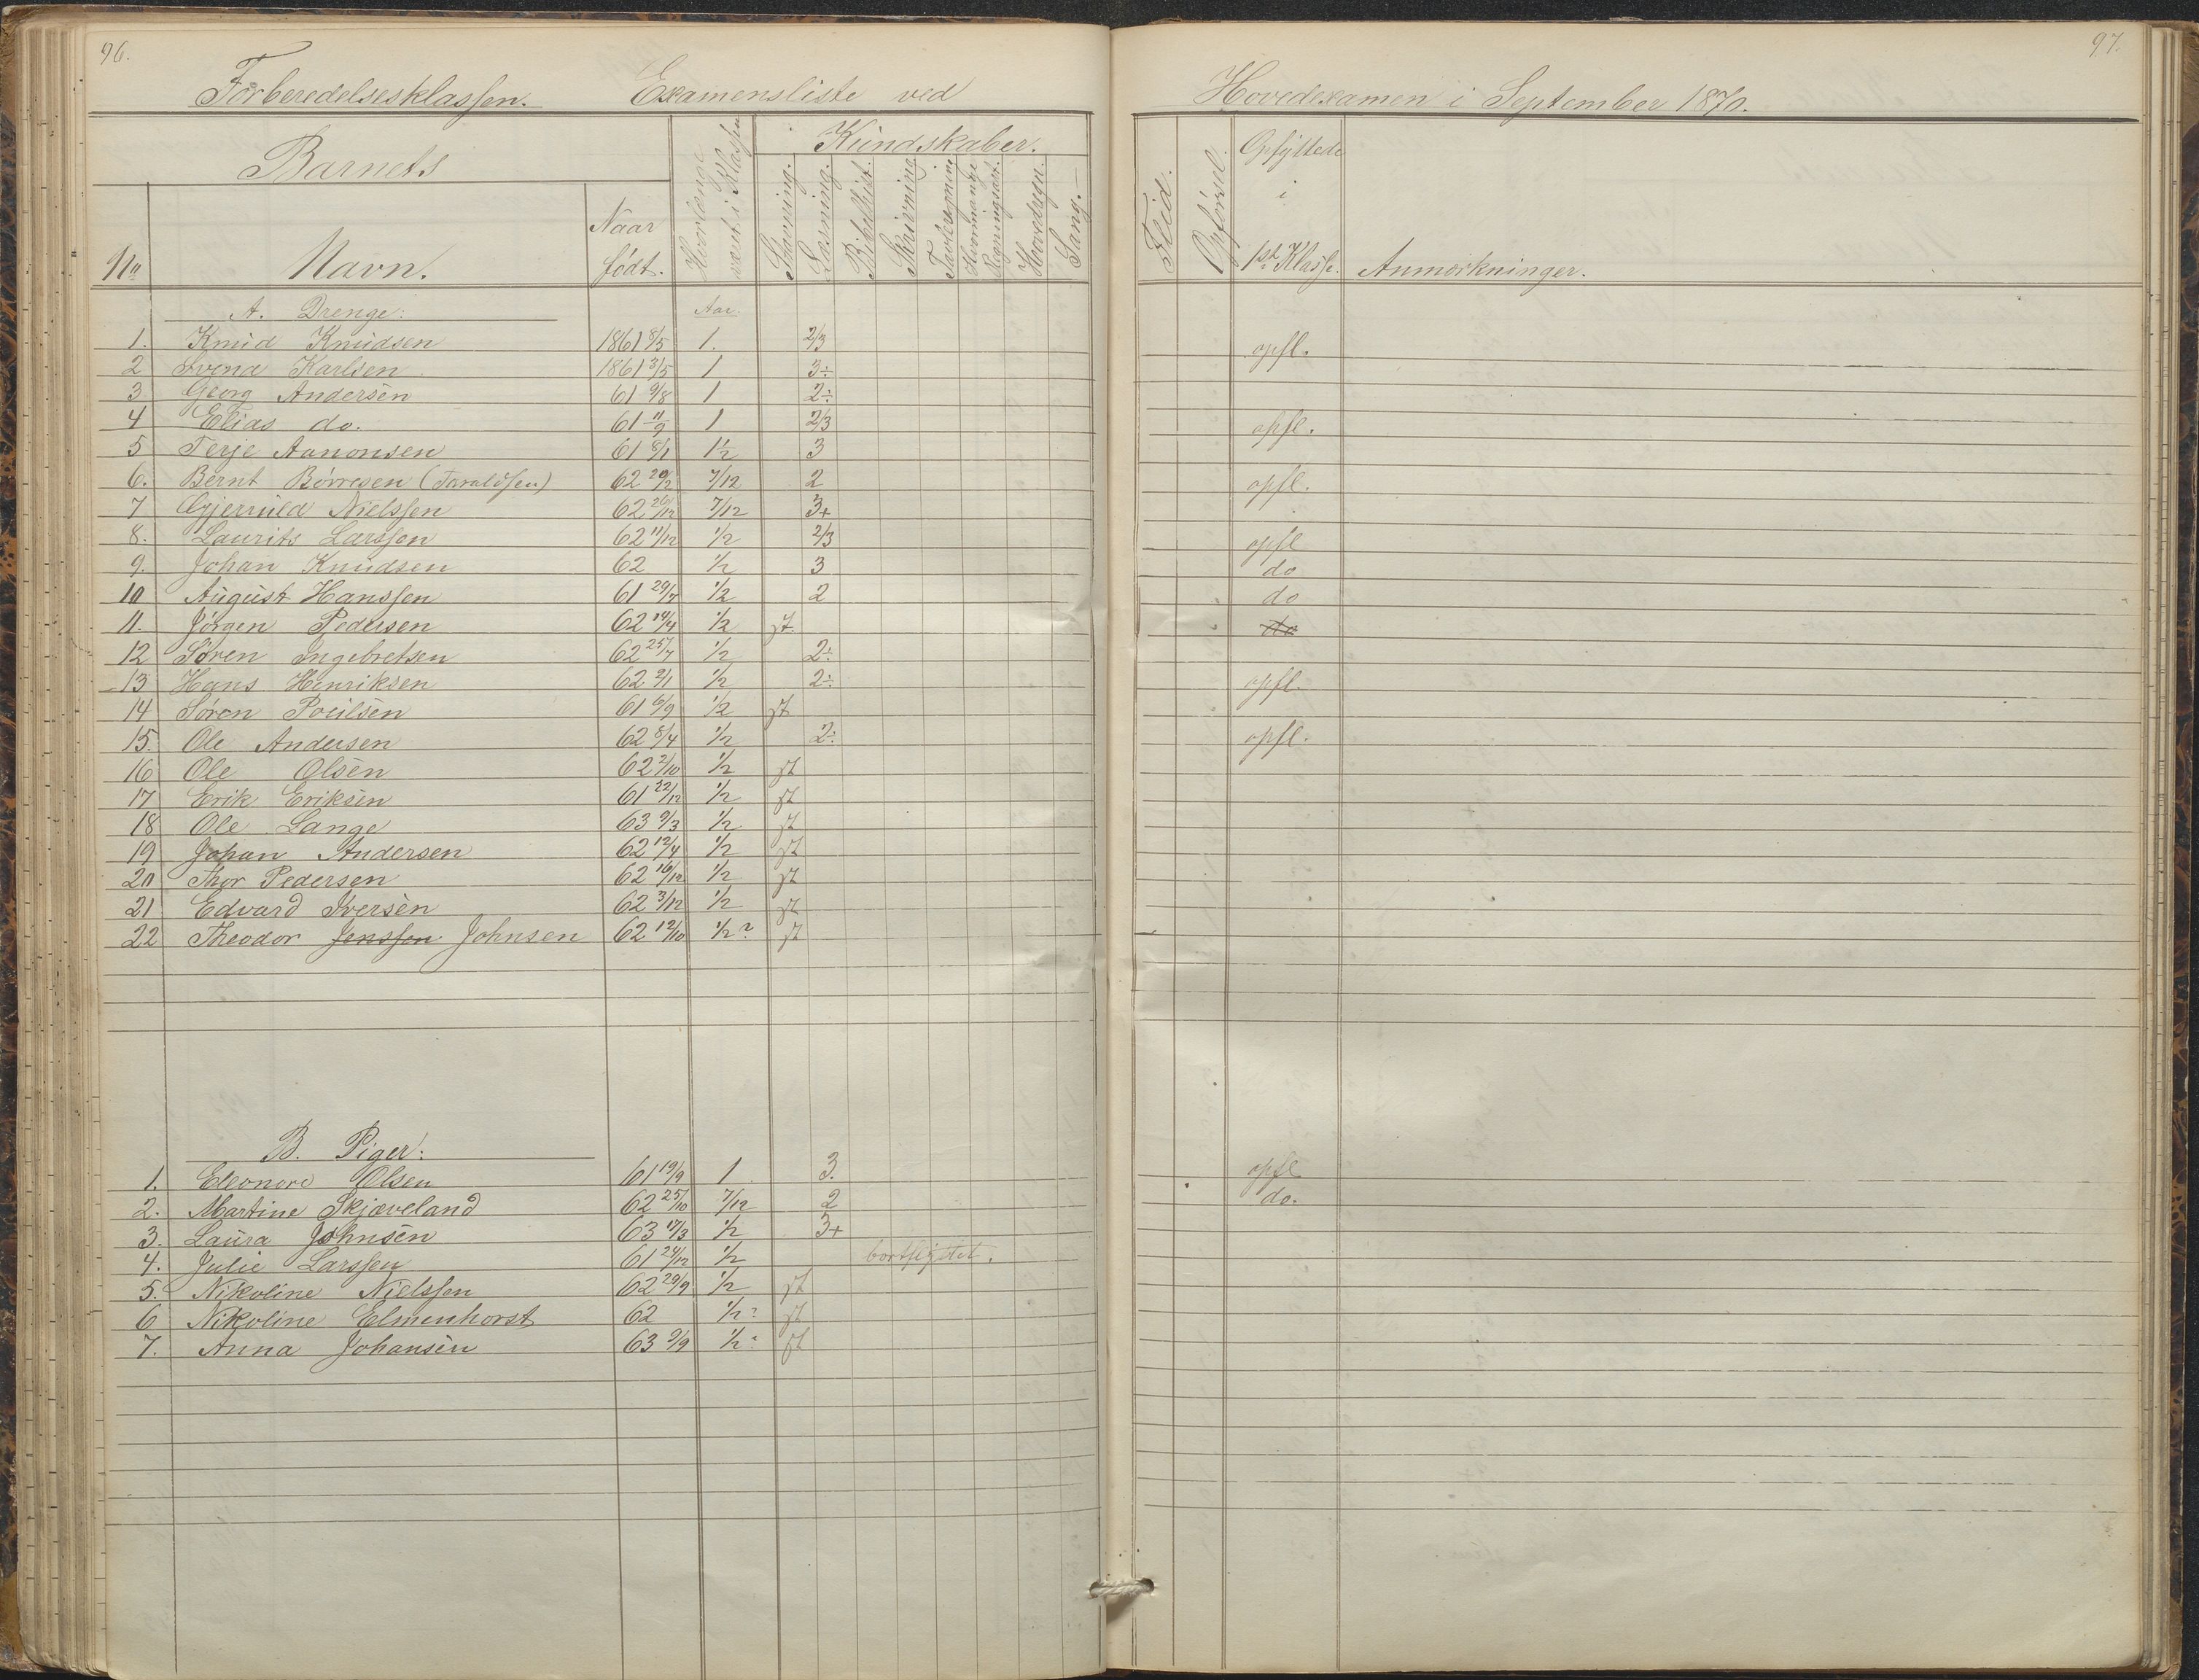 96.
97.
Forberedelsesklassen. Examensliste ved Hovedexamen i September 1870.
Barnets
Kundskaber.
No Navn. Naar født. Hvorlænge været i Klassen Stavning. Læsning. Bibelhist. Skrivning Tavleregning Hvormange Regningsart. Hovedregn. Sang. Flid. Opførsel. Opflyttede i 1st Klasse. Anmærkninger.
A. Drenge: Aar.
1. Knud Knudsen 1861 8/5 1. 2/3 opfl.
2 Svend Karlsen 1861 3/5 1 3÷
3 Georg Andersen 61 9/8 1 2÷
4 Elias do. 61 11/9 1 2/3 opfl.
5 Terje Aanonsen 61 8/1 1½ 3
6. Bernt Börresen (Taraldsen) 62 20/2 7/12 2 opfl.
7 Gjerruld Nielssen 62 26/12 7/12 3+
8. Laurits Larssen 62 11/12 1/2 2/3 opfl
9. Johan Knudsen 62 1/2 3 do
10 August Hanssen 61 29/7 1/2 2 do
11. Jörgen Pedersen 62 14/4 1/2 st. do
12 Sören Ingebretsen 62 25/7 1/2 2÷
13 Hans Henriksen 62 2/1 1/2 2÷ opfl.
14 Sören Poulsen 61 6/9 1/2 st
15. Ole Andersen 62 8/4 1/2 2÷ opfl.
16 Ole Olsen 62 2/10 1/2 st
17 Erik Eriksen 61 22/12 1/2 st
18 Ole Lange 63 9/3 1/2 st
19 Johan Andersen 62 12/4 1/2 st
20 Thor Pedersen 62 16/12 1/2 st
21 Edvard Iversen 62 3/12 1/2 st
22 Theodor Jenssen Johnsen 62 12/10 1/2? st
B. Piger:
1. Eleonore Olsen 61 19/9 1 3. opfl
2. Martine Skjæveland 62 25/10 7/12 2 do.
3. Laura Johnsen 63 17/3 1/2 3+
4. Julie Larssen 61 24/12 1/2 bortflyttet.
5. Nikoline Nielssen 62 29/9 1/2 st
6 Nikoline Elmenhorst 62 1/2? st
7. Anna Johansen 63 9/9 1/2? st